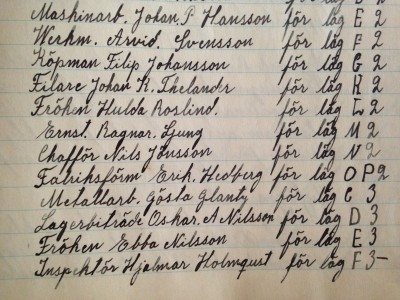 Maskinarb. Johan. P Hansson för läg E 2
Werkm. Arvid. Svensson för läg F 2
Köpman Filip Johansson för läg G 2
Filare Johan K. Thelander för läg K 2
Fröken Hulda Roslind. för läg L 2
Ernst. Ragnar. Ljung för läg M 2
Chafför Nils Jönsson för läg N 2
Fabriksförm Erik. Hedberg för läg O P 2
Metallarb. Gösta Glanty för läg C 3
Lagerbiträde Oskar. A Nilsson för läg D 3
Fröken Ebba Nilsson för läg E 3
Inspektör Hjalmar Holmqust för läg F 3-